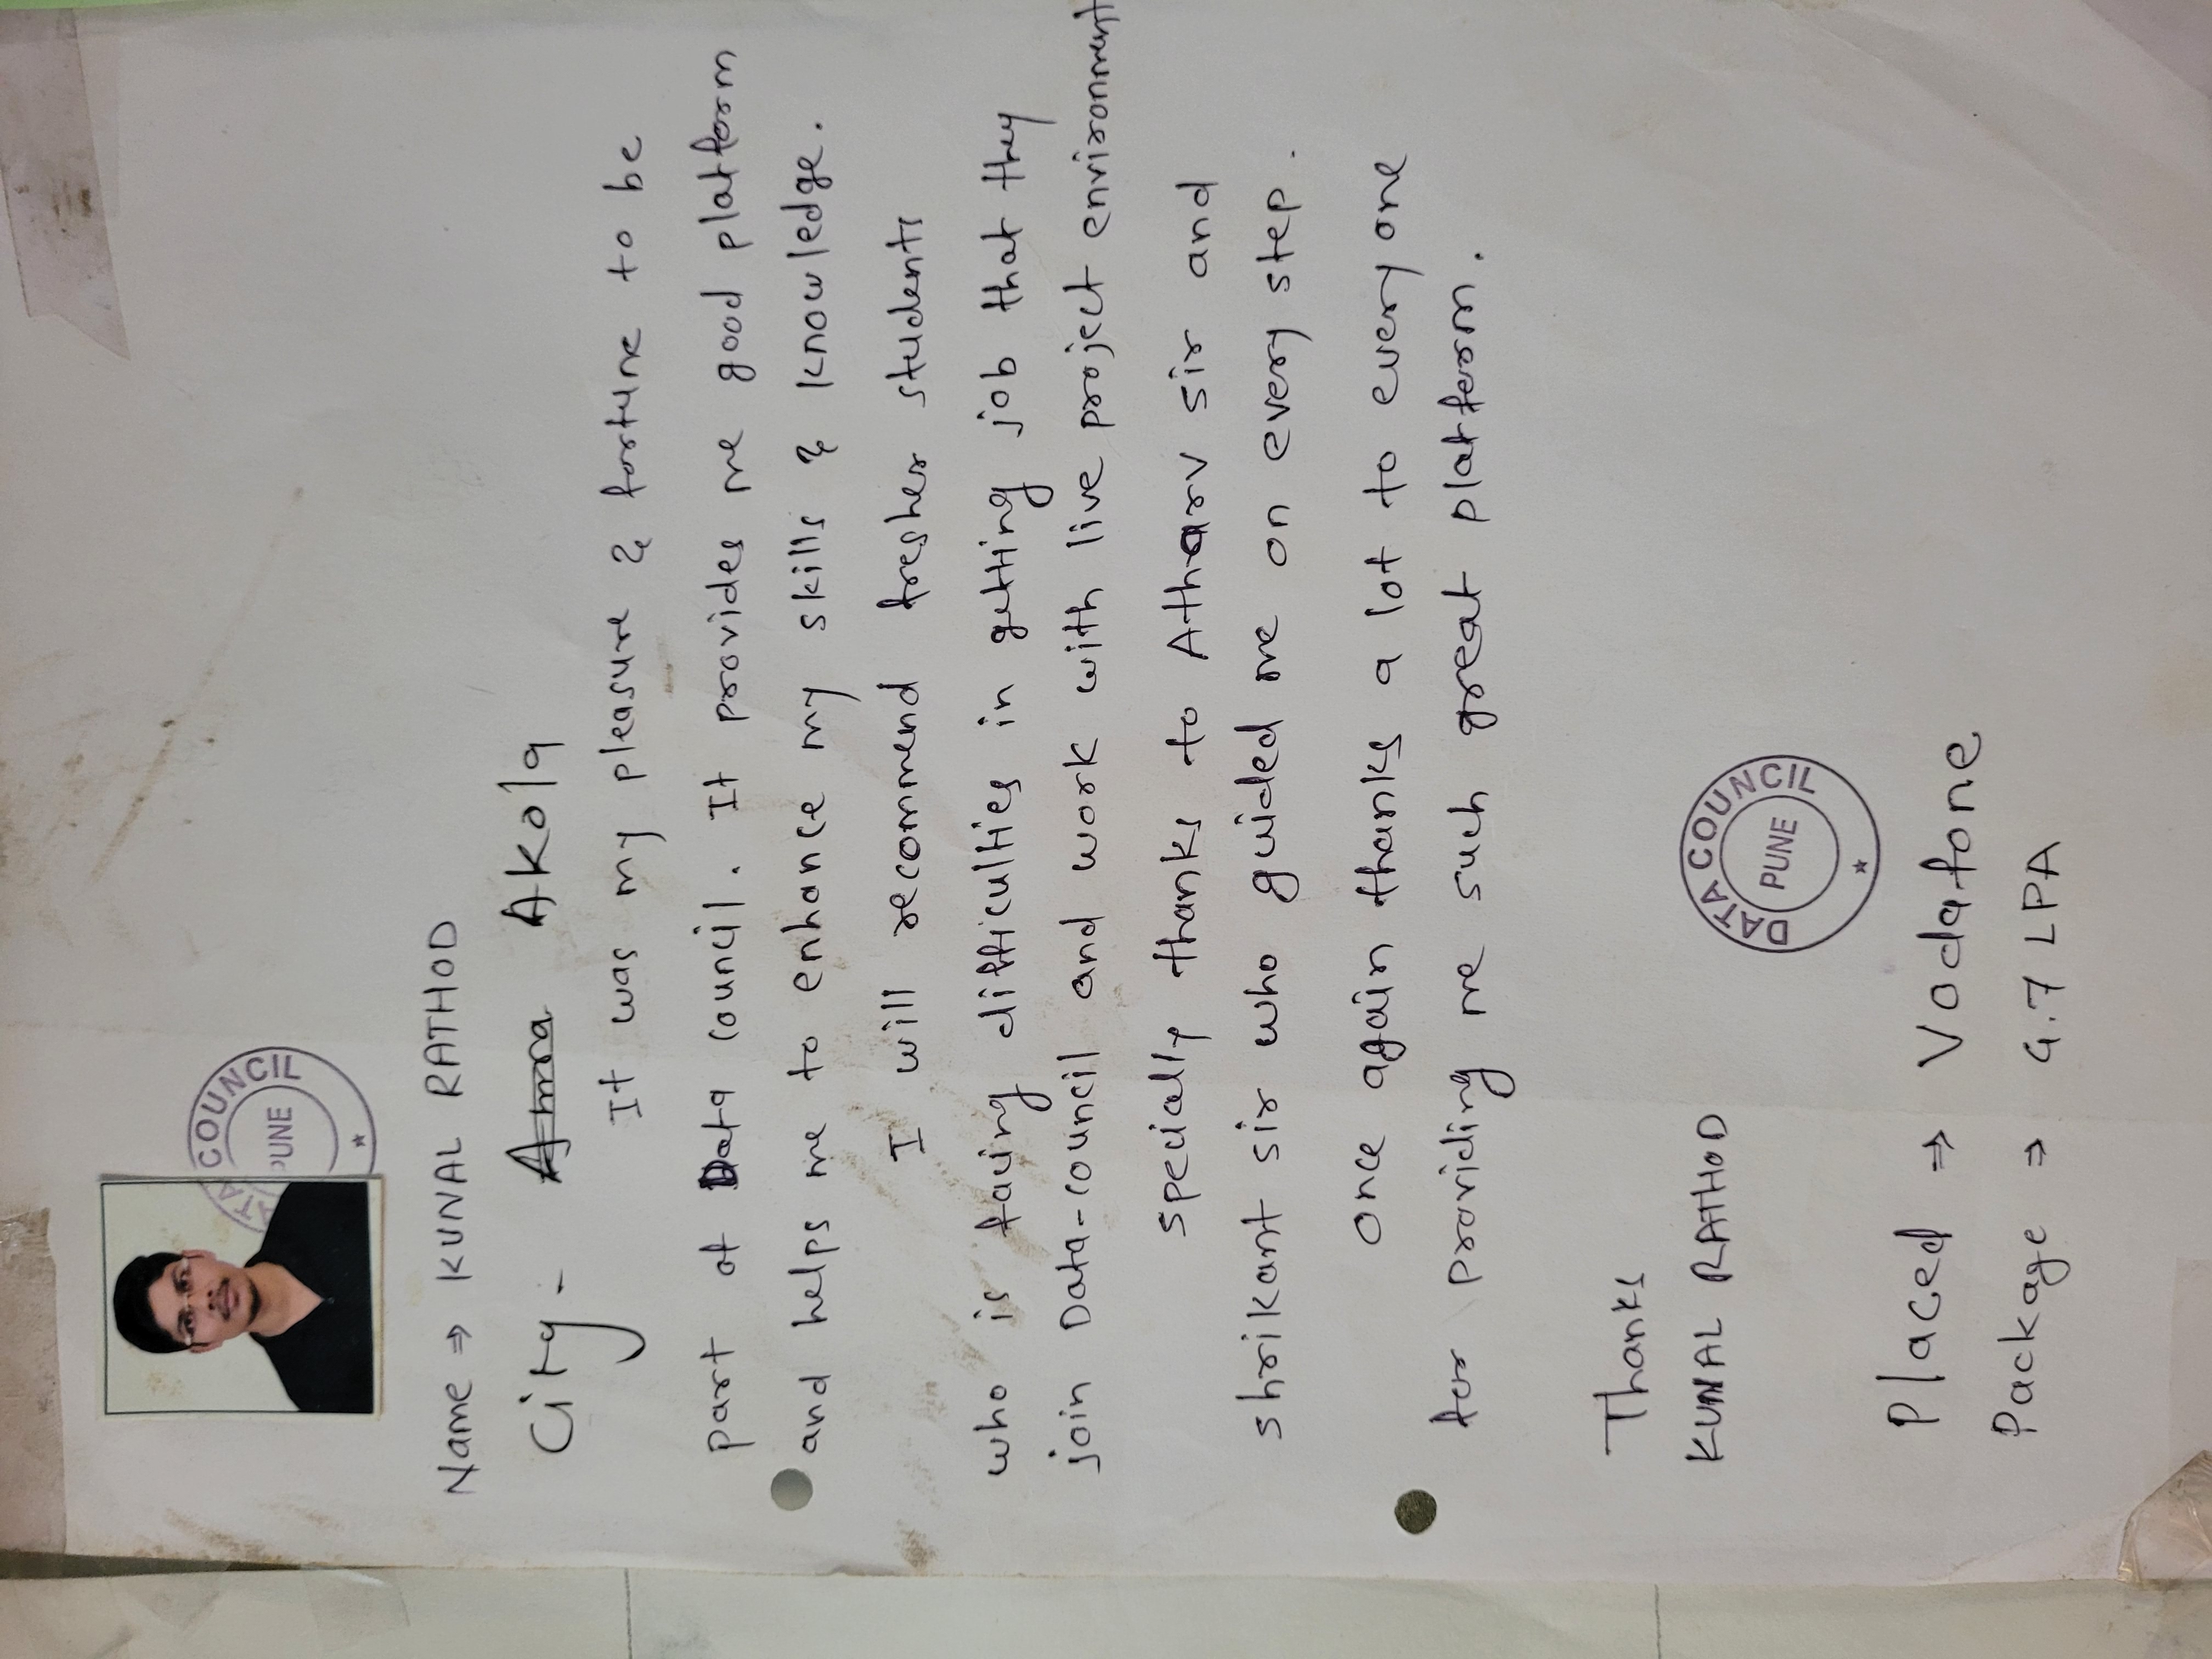 DATA COUNCIL
PUNE
Name ⇒ KUNAL RATHOD
City - Akola
It was my pleasure & fortune to be
part of Data council. It provides me good platform
and helps me to enhance my skills & knowledge.
I will recommend fresher students
who is facing difficulties in getting job that they
join Data-council and work with live project environment
specially thanks to Atharv sir and
shrikant sir who guided me on every step.
once again thanks a lot to every one
for providing me such great platform.
Thanks
KUNAL RATHOD
DATA COUNCIL
PUNE
Placed ⇒ Vodafone
Package ⇒ 4.7 LPA